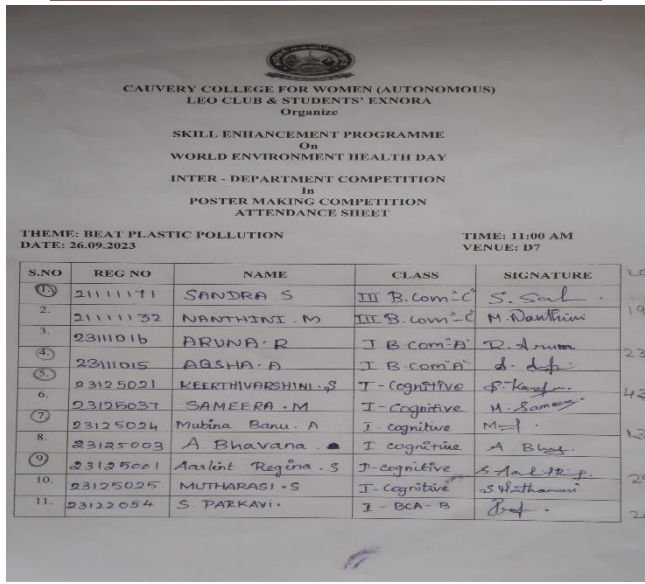 CAUVERY COLLEGE FOR WOMEN (AUTONOMOUS)
LEO CLUB & STUDENTS' EXNORA
Organize
SKILL ENHANCEMENT PROGRAMME
On
WORLD ENVIRONMENT HEALTH DAY
INTER - DEPARTMENT COMPETITION
In
POSTER MAKING COMPETITION
ATTENDANCE SHEET
THEME: BEAT PLASTIC POLLUTION TIME: 11:00 AM
DATE: 26.09.2023 VENUE: D7
S.NO REG NO NAME CLASS SIGNATURE
1. 21111171 SANDRA S III B.com-"C"
2. 21111132 NANTHINI. M III B.com-"C" M. Nanthini
3. 23111016 ARUNA. R I B com "A" R. Aruna
4. 23111015 AQSHA. A I B.com "A"
5. 23125021 KEERTHIVARSHINI. S I-Cognitive
6. 23125037 SAMEERA. M I-Cognitive M. Sameera
7. 23125024 Mubina Banu. A I-cognitive
8. 23125003 A. Bhavana. I cognitive
9. 23125001 Regina. S I-cognitive
10. 23125025 MUTHARASI. S I-Cognitive
11. 23122054 S. PARKAVI. I - BCA - B